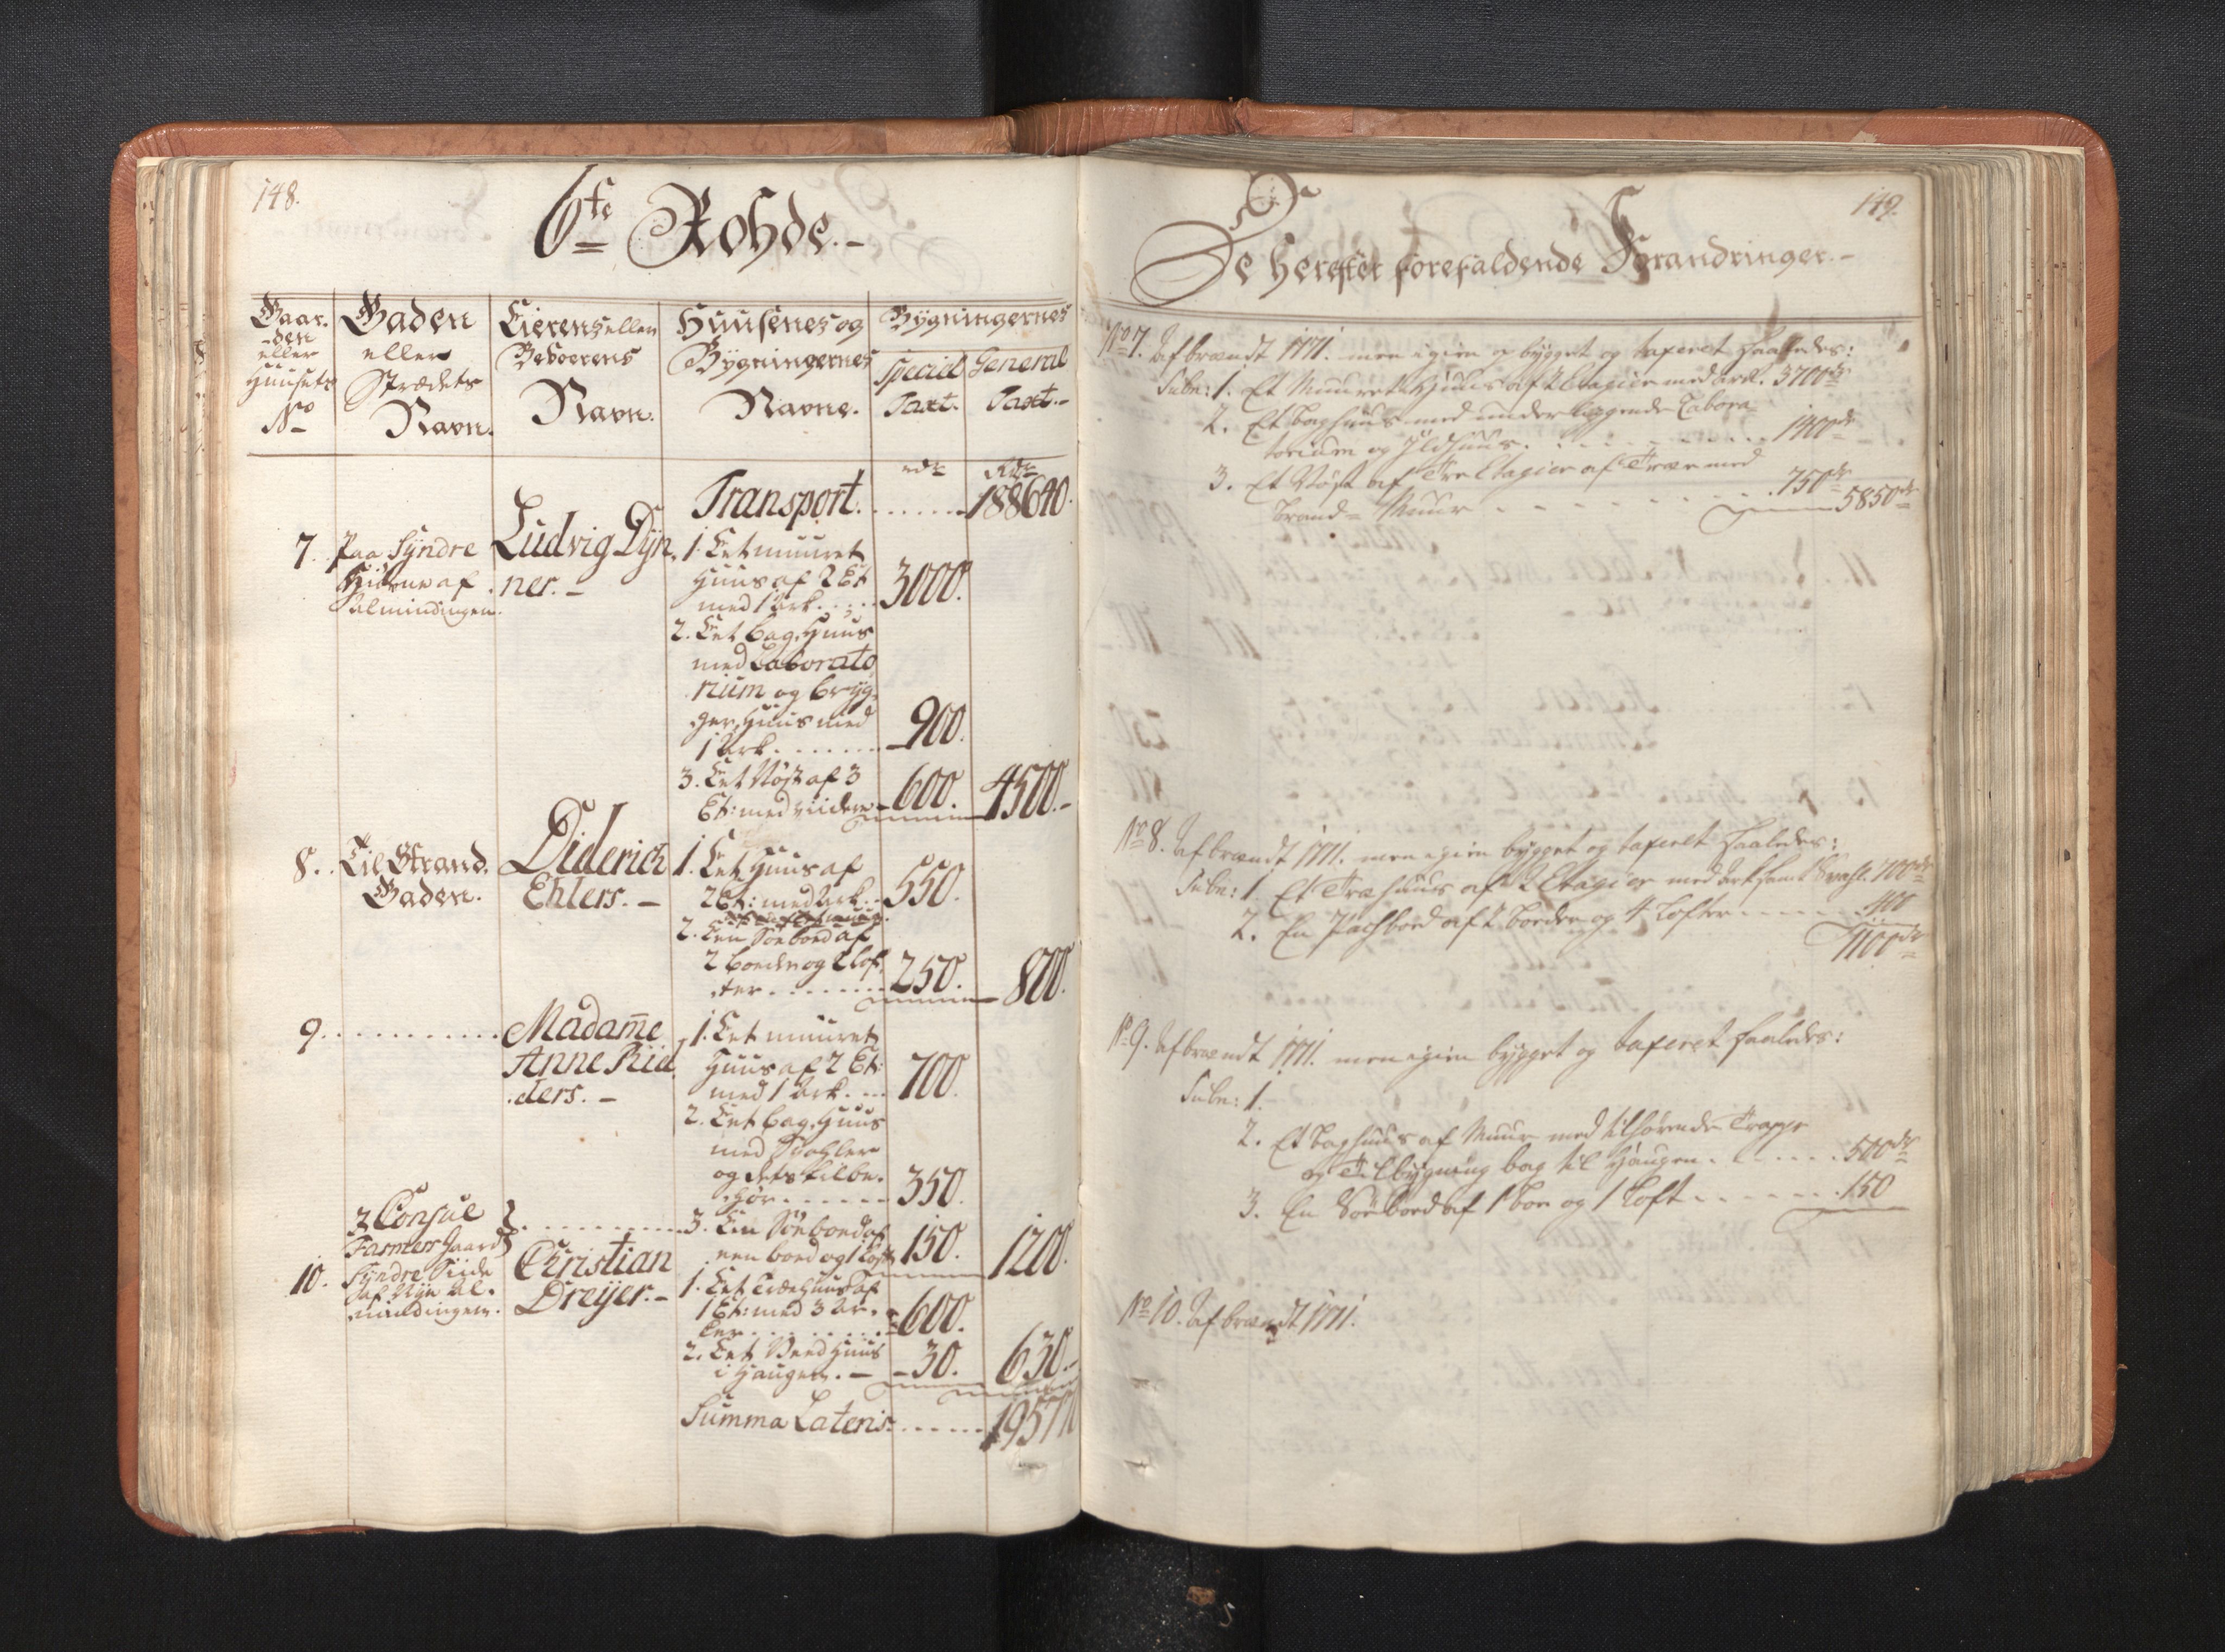 148.
6te Rohde.-
Gaar-
den
eller
Huusets
No
Gaden
eller
Strædets
Navn.
Eierens eller
Beboerens
Navn.
Huusenes og
Bygningernes
Navne.
Bygningernes
Special
Taxt.
General
Taxt.-
rdr
Rdr
Transport. . . . . . . . 188640.
7. Paa Syndre
Hiørne af
Almindingen.
Ludvig Dyn,
ner.-
1. Eet muuret
Huus af 2 Et
med 1 Ark. . . . . 3000.
2. Eet Bag-Huus
med Laborato
rium og Bryg-
ger Huus med
1 Ark. . . . . . . 900.
3. Eet Nøst af 3
Et: med viidere 600. 4500.-
8. Til Strand-
Gaden.
Diderich
Ehlers.-
1. Eet Huus af
2 Et: med Ark. . 550.
2. Een Søeboed af
2 boeder og 2 lof-
ter. . . . . . . 250. 800.
9. . . . . . . . . . . . Madame
Anne Rid
ders.-
1. Eet muuret
Huus af 2 Et:
med 1 Ark. . . . 700.
2. Eet bag-Huus
med
og dets tilbe-
hør. . . . . . 350.
3. Een Søeboed af
een boed og 1 Loft 150. 1200.
Consul
Farmers Gaard
10. Syndre Siide
af Nye Al-
mindingen.
Christian
Dreyer.-
1. Eet Træehuus af
1 Et: med 3 Ar-
ker. . . . . . . . . 600.
2. Eet Veed Huus
i Haugen.- 30. 630.-
Summa Lateris. . . . . . 19577
149.
De herefter forefaldende Forandringer.-
No 7. Afbrændt 1771. men igien opbygget og taxeret saaledes:
Subn: 1. Et Muuret Huus af 2 Etagier med Ark. 3700 dr
2. Et Baghuus med underliggende Labora-
torium og Ildhuus. . . . . . . . . . . 1400 dr
3. Et Nøst af Tre Etagier af Træe med
Brand-Muur . . . . . . . . . 750 dr 5850 dr
No 8. Afbrændt 1771. men igien bygget og taxeret saaledes:
Subn: 1. Et Træhuus af 2 Etagier med Ark samt 700 dr
2. En Packboed af 2 Boeder og 4 Lofter . . . . . 400
1100 dr
No 9. Afbrændt 1771. men igien bygget og taxeret saaledes:
Subn: 1.
2. Et Baghuus af Muur med tilhørende Trappe
og Tilbygning bag til Haugen. . . . . . 500 dr
3. En Søeboed af 1 Boe og 1 Loft . . . . . . . 150
No 10. Afbrændt 1771.